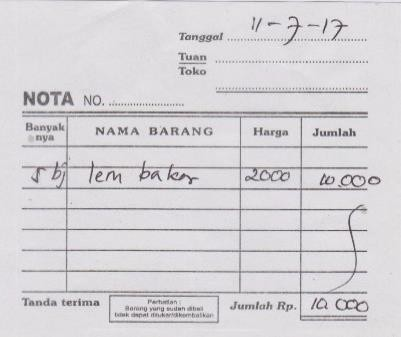 Tanggal 11-7-17
Tuan
Toko
NOTA NO.
Banyak nya NAMA BARANG Harga Jumlah
5 bj lem bakar 2000 10.000
Tanda terima
Perhatian :
Barang yang sudah dibeli
tidak dapat ditukar/dikembalikan
Jumlah Rp. 10.000